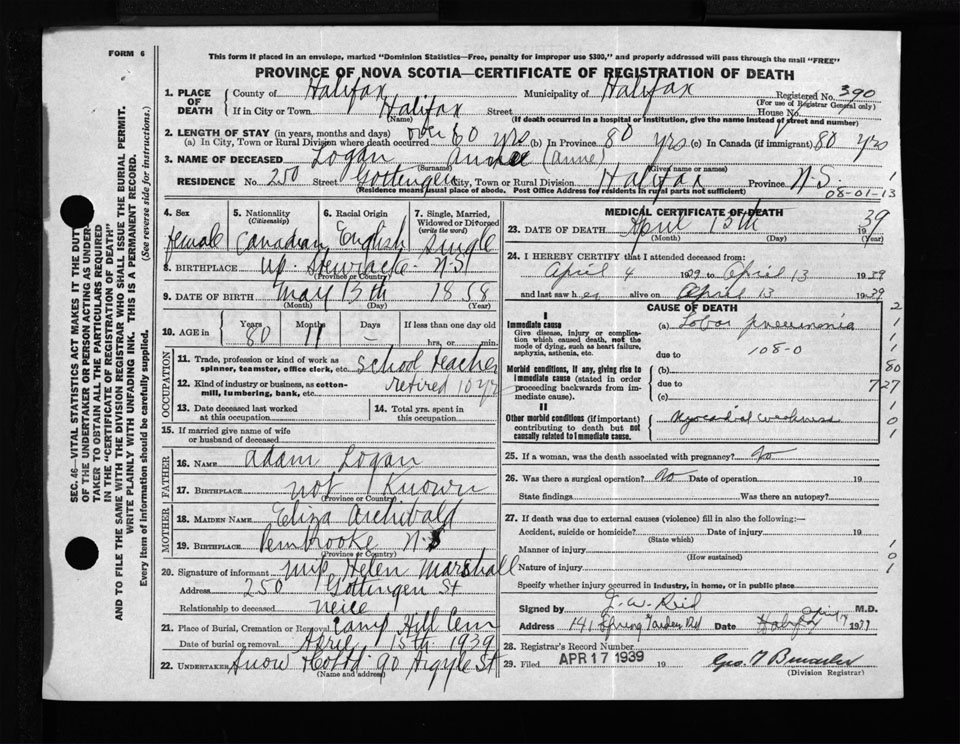 FORM 6
This form if placed in an envelope, marked "Dominion Statistics—Free, penalty for improper use $300," and properly addressed will pass through the mail "FREE"
PROVINCE OF NOVA SCOTIA—CERTIFICATE OF REGISTRATION OF DEATH
1. PLACE OF DEATH County of Halifax Municipality of Halifax Registered No. 390
(For use of Registrar General only)
If in City or Town Halifax Street House No.
(Name) (If death occurred in a hospital or institution, give the name instead of street and number)
2. LENGTH OF STAY (in years, months and days)
(a) In City, Town or Rural Division where death occurred over 60 yrs (b) In Province 80 yrs (c) In Canada (if immigrant) 80 yrs
3. NAME OF DECEASED Logan (Anne)
(Surname) (Given name or names)
RESIDENCE No. 250 Street Gottingen City, Town or Rural Division Halifax Province N.S.
(Residence means usual place of abode. Post Office Address for residents in rural parts not sufficient)
08-01-13
1
4. Sex female
5. Nationality (Citizenship) Canadian
6. Racial Origin English
7. Single, Married, Widowed or Divorced (write the word) single
8. BIRTHPLACE Up. Stewiacke N.S
(Province or Country)
9. DATE OF BIRTH May 13th 1858
(Month) (Day)
10. AGE in Years 80 Months 11 Days — If less than one day hrs. or min.
OCCUPATION
11. Trade, profession or kind of work as spinner, teamster, office clerk, etc. School teacher
12. Kind of industry or business, as cotton-mill, lumbering, bank, etc. retired 10 yrs
13. Date deceased last worked at this occupation
14. Total yrs. spent in this occupation
15. If married give name of wife or husband of deceased
FATHER
16. NAME Adam Logan
17. BIRTHPLACE not Known
(Province or Country)
MOTHER
18. MAIDEN NAME Eliza Archibald
19. BIRTHPLACE Pembrooke N.S
(Province or Country)
20. Signature of informant Helen Marshall
Address 250 Gottingen St
Relationship to deceased neice
21. Place of Burial, Cremation or Removal Camp Hill Cem
Date of burial or removal April 15th 1939
22. UNDERTAKER Snow 90 Argyle St
(Name and address)
MEDICAL CERTIFICATE OF DEATH
23. DATE OF DEATH April 13th 1939
(Month) (Day) (Year)
24. I HEREBY CERTIFY that I attended deceased from:
April 4 1939 to April 13 1939
and last saw her alive on April 13 1939
CAUSE OF DEATH
I
Immediate cause
Give disease, injury or complication which caused death, not the mode of dying, such as heart failure, asphyxia, asthenia, etc.
(a) Lobar pneumonia
due to 108-0
Morbid conditions, if any, giving rise to immediate cause (stated in order proceeding backwards from immediate cause).
(b)
due to
(c)
II
Other morbid conditions (if important) contributing to death but not causally related to immediate cause.
Myocardial weakness
2
1
1
1
80
727
1
0
1
25. If a woman, was the death associated with pregnancy? No
26. Was there a surgical operation? No Date of operation 19
State findings Was there an autopsy?
27. If death was due to external causes (violence) fill in also the following:—
Accident, suicide or homicide? Date of injury 19
(State which)
Manner of injury
(How sustained)
Nature of injury
1
0
1
Specify whether injury occurred in industry, in home, or in public place
Signed by J. W. Reid M.D.
Address 141 Spring Garden Rd Date
28. Registrar's Record Number
29. Filed APR 17 1939 19
(Division Registrar)
SEC. 46—VITAL STATISTICS ACT MAKES IT THE DUTY
OF THE UNDERTAKER OR PERSON ACTING AS UNDER-
TAKER TO OBTAIN ALL THE PARTICULARS REQUIRED
IN THE "CERTIFICATE OF REGISTRATION OF DEATH"
AND TO FILE THE SAME WITH THE DIVISION REGISTRAR WHO SHALL ISSUE THE BURIAL PERMIT.
WRITE PLAINLY WITH UNFADING INK. THIS IS A PERMANENT RECORD.
Every item of information should be carefully supplied. (See reverse side for instructions.)